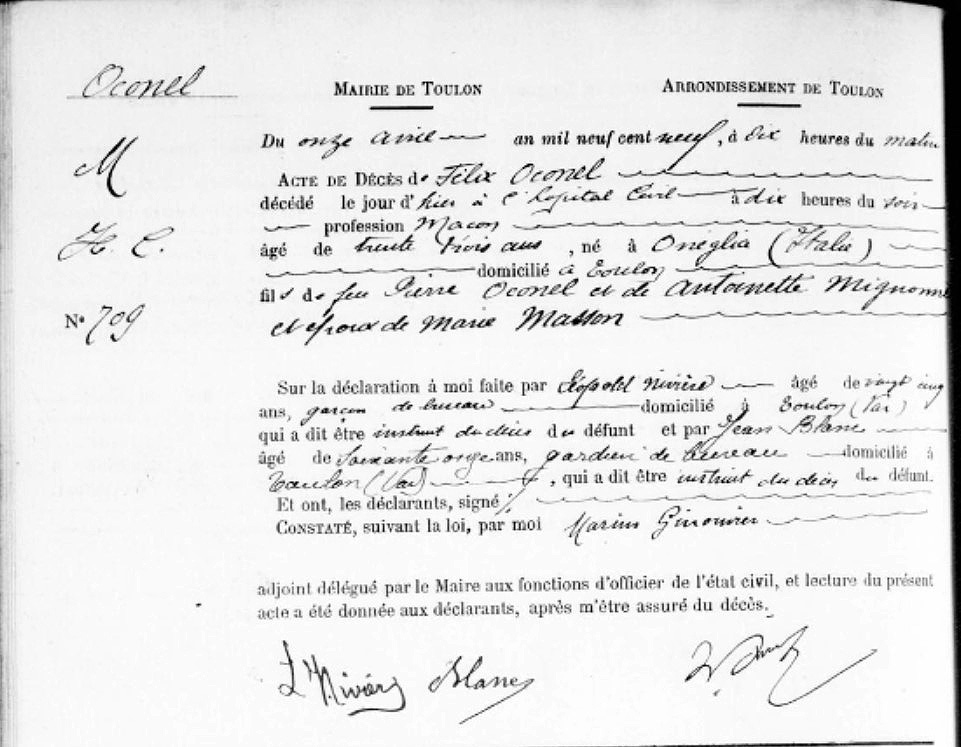 Oconel
MAIRIE DE TOULON
ARRONDISSEMENT DE TOULON
M
H. C.
N° 709
Du onze avril an mil neuf cent neuf, à dix heures du matin
ACTE DE DÉCÈS de Félix Oconel
décédé le jour d'hier à l'hôpital Civil à dix heures du soir
profession Maçon
âgé de trente trois ans, né à Oneglia (Italie)
domicilié à Toulon
fils de feu Pierre Oconel et de Antoinette Mignonne
et époux de Marie Masson
Sur la déclaration à moi faite par Léopold Nivière âgé de vingt cinq
ans, garçon de bureau domicilié à Toulon (Var)
qui a dit être instruit du décès du défunt et par Jean Blanc
âgé de soixante onze ans, gardien de bureau domicilié à
Toulon (Var), qui a dit être instruit du décès du défunt.
Et ont, les déclarants, signé
CONSTATÉ, suivant la loi, par moi Marius
adjoint délégué par le Maire aux fonctions d'officier de l'état civil, et lecture du présent
acte a été donnée aux déclarants, après m'être assuré du décès.
L Nivière Blanc